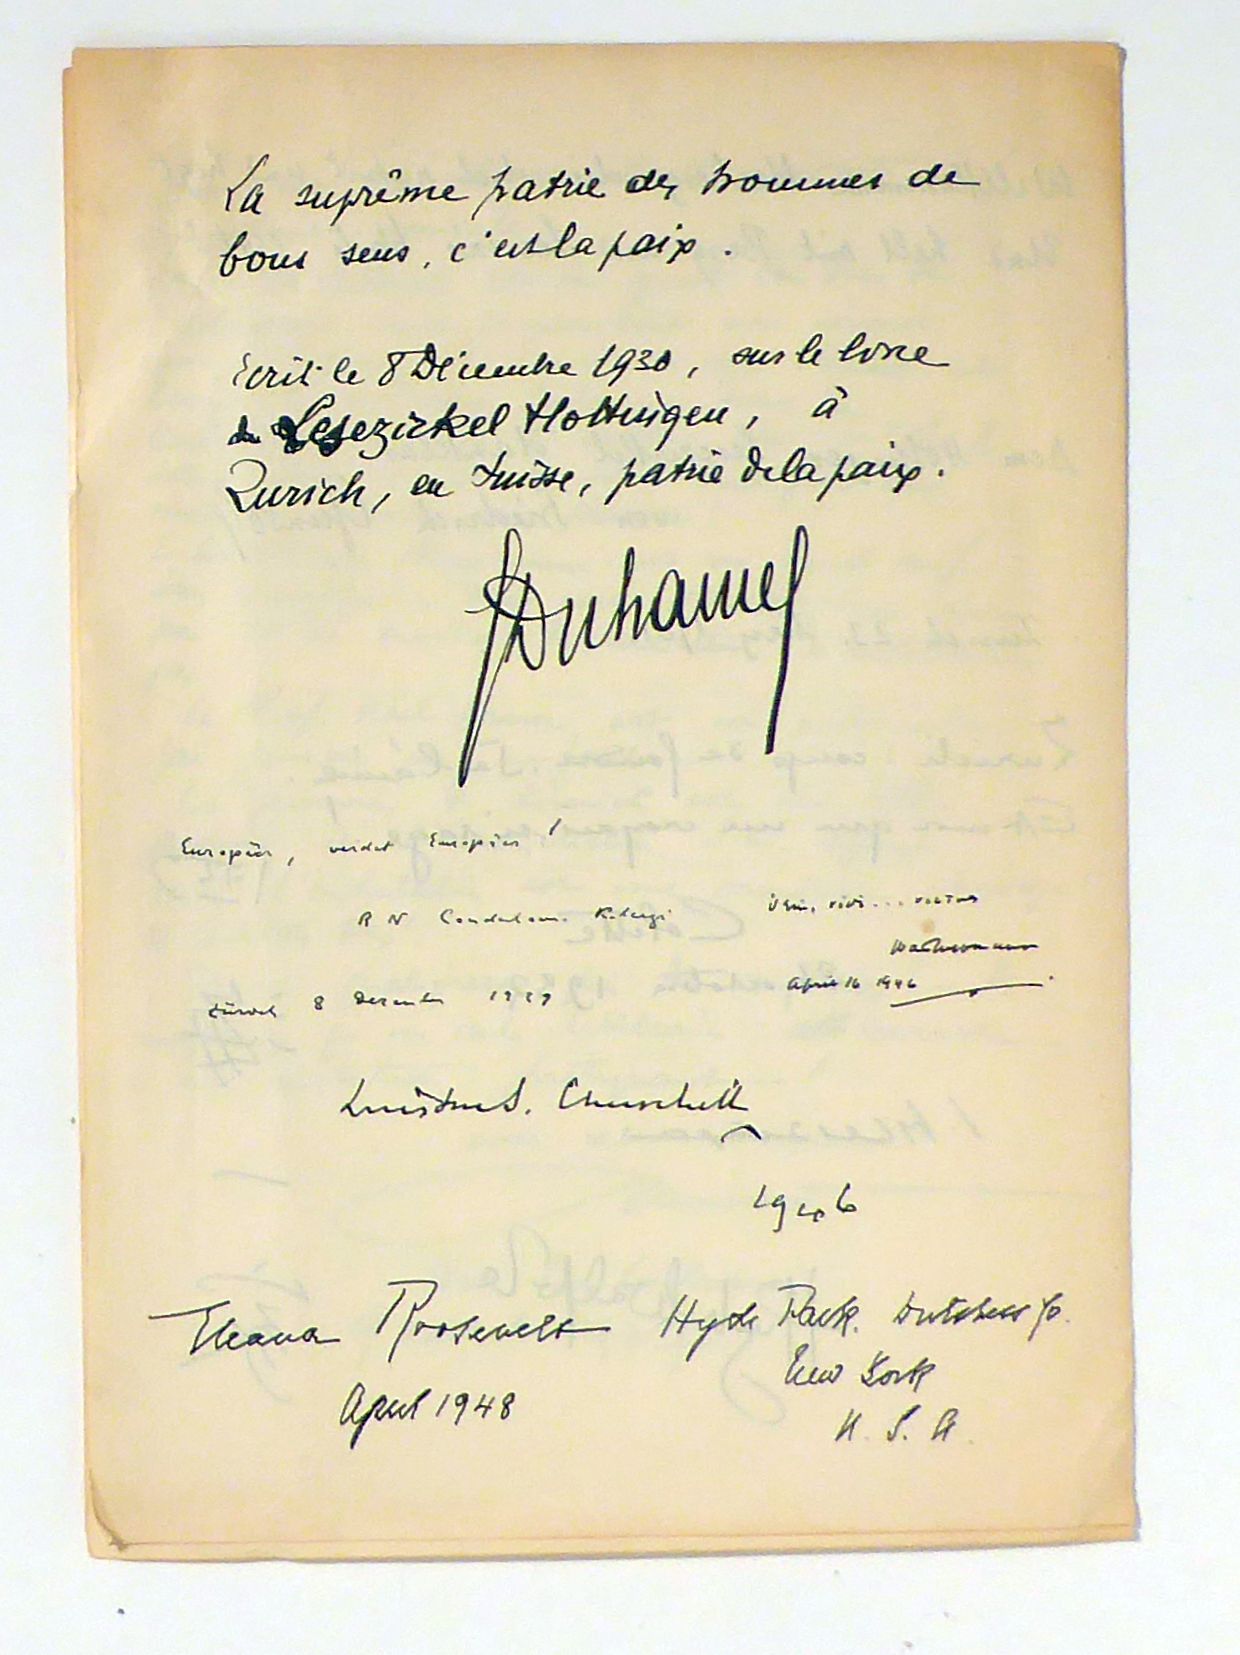 La suprême patrie des hommes de
bons sens, c'est la paix.
Ecrit le 8 Décembre 1930, sur le livre
du Lesezirkel Hottingen, à
Zurich, en Suisse, patrie de la paix.
GDuhamel
Europäer, werdet Europäer!
R N Coudenhove-Kalergi
Veni, vidi... victus
April 16 1946
Zürich 8 Dezember
Winston S. Churchill
1946
Eleanor Roosevelt Hyde Park. Dutchess Co.
New York
April 1948
U. S. A.